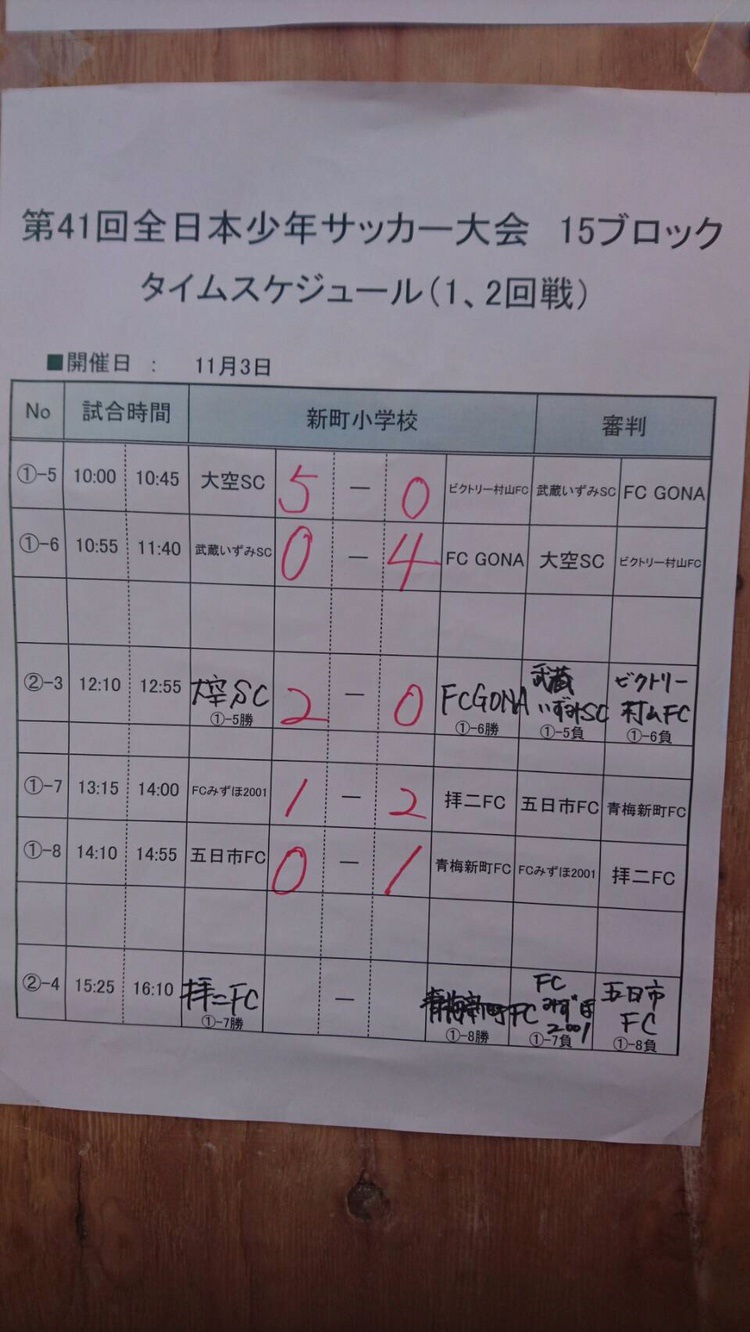 第41回全日本少年サッカー大会　15ブロック
タイムスケジュール（1、2回戦）
■開催日　：　11月3日
No 試合時間 新町小学校 審判
①-5 10:00 10:45 大空SC 5 － 0 ビクトリー村山FC 武蔵いずみSC FC GONA
①-6 10:55 11:40 武蔵いずみSC 0 － 4 FC GONA 大空SC ビクトリー村山FC
②-3 12:10 12:55 大空SC 2 － 0 FCGONA 武蔵いずみSC ビクトリー村山FC
①-5勝 ①-6勝 ①-5負 ①-6負
①-7 13:15 14:00 FCみずほ2001 1 － 2 拝二FC 五日市FC 青梅新町FC
①-8 14:10 14:55 五日市FC 0 － 1 青梅新町FC FCみずほ2001 拝二FC
②-4 15:25 16:10 拝二FC － 青梅新町FC FCみずほ2001 五日市FC
①-7勝 ①-8勝 ①-7負 ①-8負